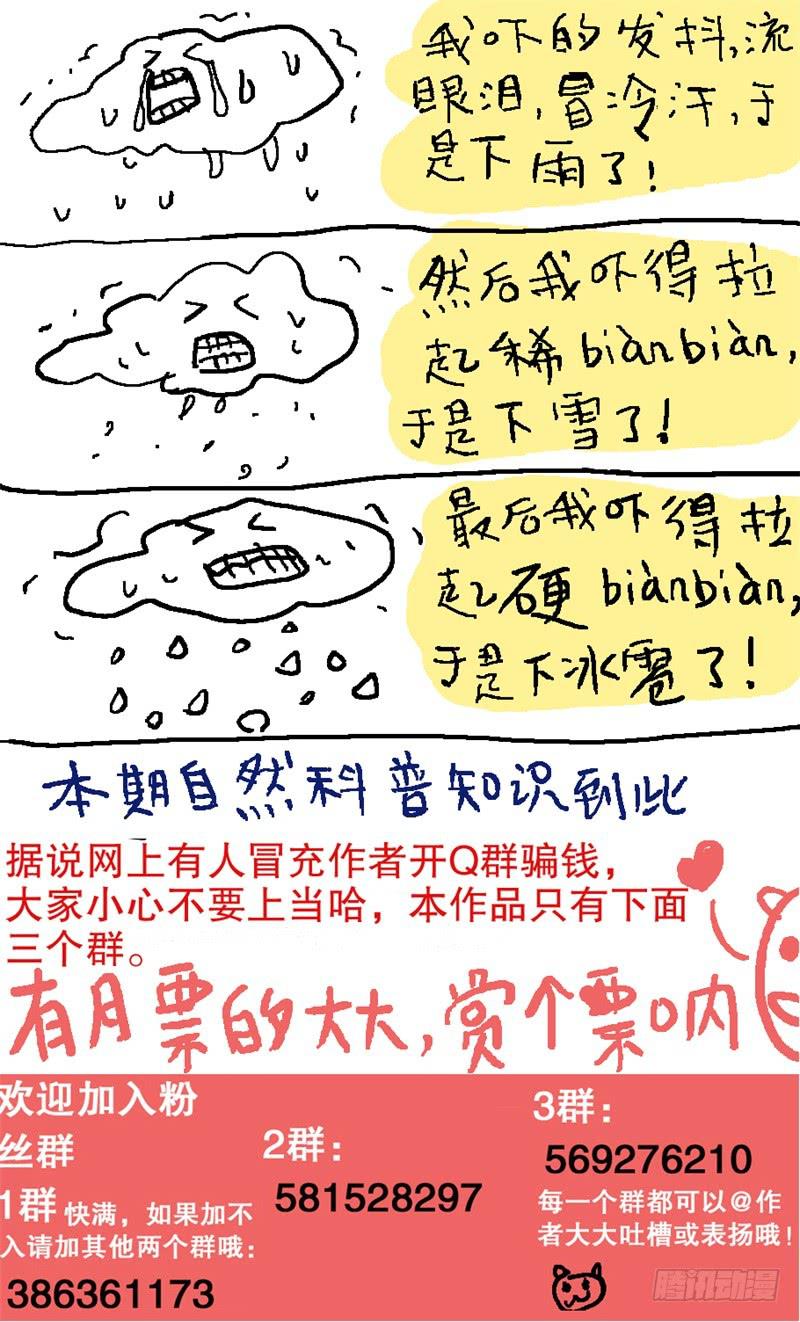 我吓的发抖,流
眼泪,冒冷汗,于
是下雨了!
然后我吓得拉
起稀biànbiàn,
于是下雪了!
最后我吓得拉
起硬biànbiàn,
于是下冰雹了!
本期自然科普知识到此
据说网上有人冒充作者开Q群骗钱，
大家小心不要上当哈，本作品只有下面
三个群。
有月票的大大,赏个票呐
欢迎加入粉
丝群
1群 快满，如果加不
入请加其他两个群哦：
386361173
2群：
581528297
3群：
569276210
每一个群都可以@作
者大大吐槽或表扬哦！
腾讯动漫